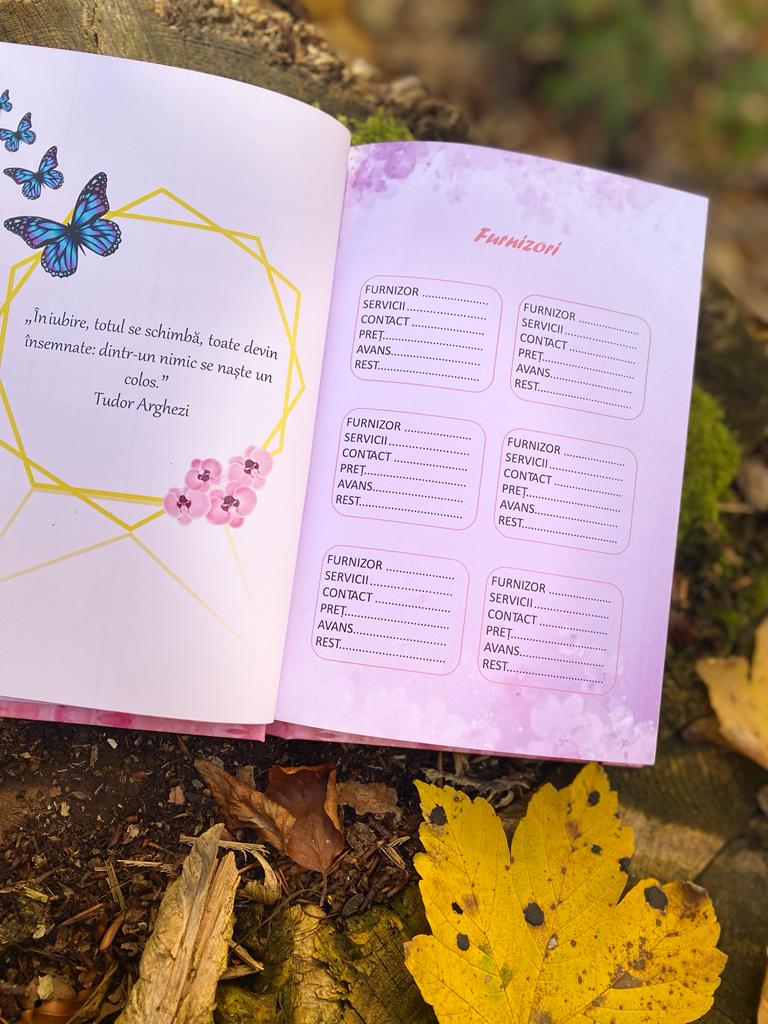 „În iubire, totul se schimbă, toate devin
însemnate: dintr-un nimic se naște un
colos.”
Tudor Arghezi
Furnizori
FURNIZOR ....................
SERVICII.........................
CONTACT ......................
PREȚ...............................
AVANS............................
REST................................
FURNIZOR ....................
SERVICII.........................
CONTACT ......................
PREȚ...............................
AVANS............................
REST................................
FURNIZOR ....................
SERVICII.........................
CONTACT ......................
PREȚ...............................
AVANS............................
REST................................
FURNIZOR ....................
SERVICII.........................
CONTACT ......................
PREȚ...............................
AVANS............................
REST................................
FURNIZOR ....................
SERVICII.........................
CONTACT ......................
PREȚ...............................
AVANS............................
REST................................
FURNIZOR ....................
SERVICII.........................
CONTACT ......................
PREȚ...............................
AVANS............................
REST................................